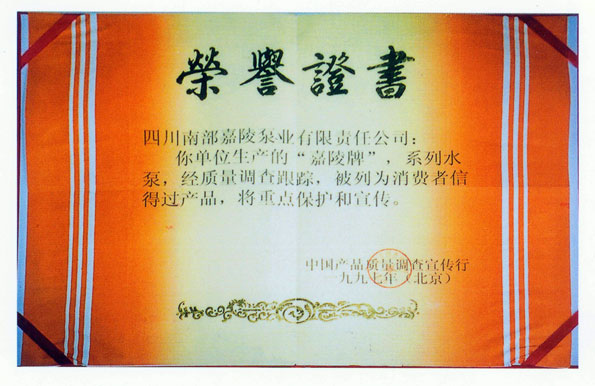 榮譽證書
四川南部嘉陵泵业有限责任公司：
你单位生产的“嘉陵牌”，系列水
泵，经质量调查跟踪，被列为消费者信
得过产品，将重点保护和宣传。
中国产品质量调查宣传行
一九九七年（北京）